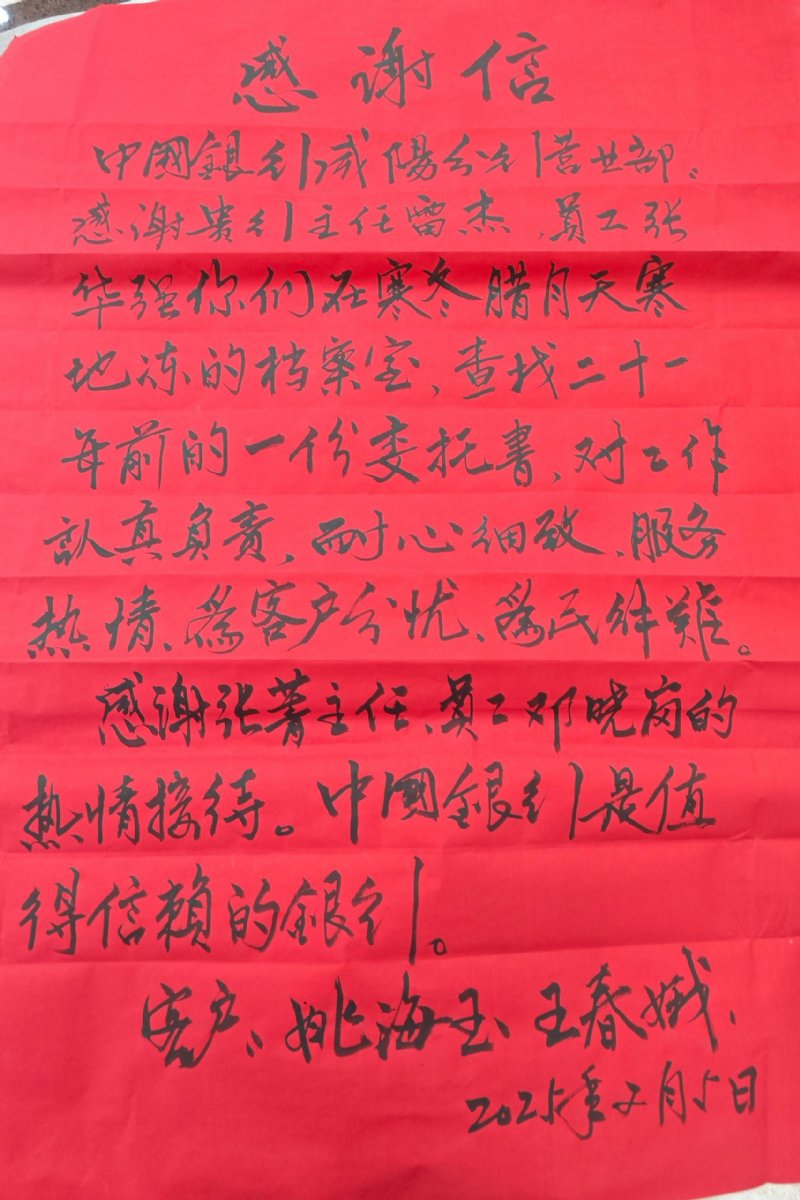 感谢信
中國銀行咸陽分行营业部:
感谢贵行主任雷杰、員工张
华强你们在寒冬腊月天寒
地冻的档案室,查找二十一
年前的一份委托書,对工作
認真負責,耐心细致、服务
热情、為客户分忧、為民解難。
感谢张菁主任、員工邓晓岗的
热情接待。中國銀行是值
得信賴的銀行。
客户:姚海玉 王春娥.
2025年2月5日